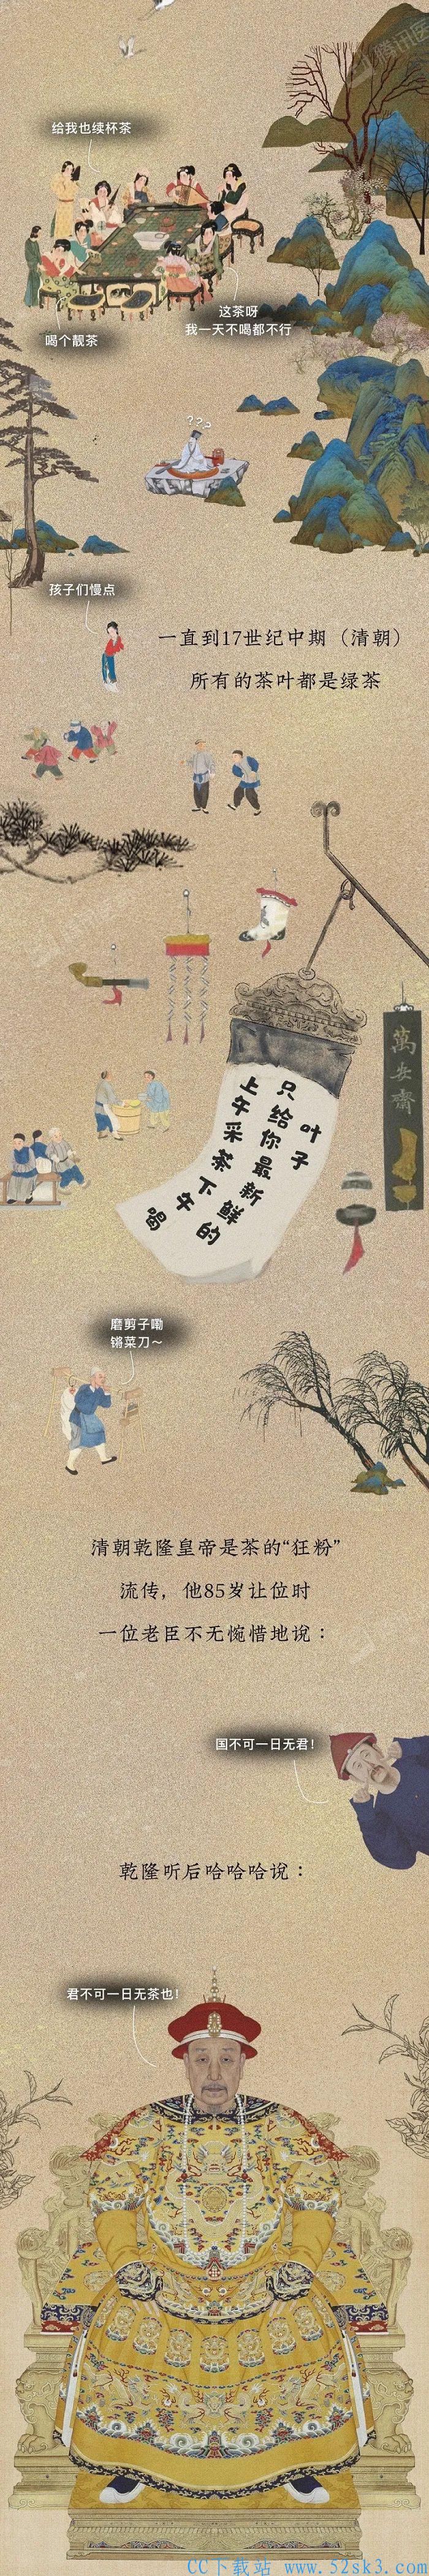 腾讯医
给我也续杯茶
喝个靓茶
这茶呀
我一天不喝都不行
???
孩子们慢点
一直到17世纪中期（清朝）
所有的茶叶都是绿茶
萬安齋
叶子
只给你最新鲜的
上午采茶下午
喝
磨剪子嘞
锵菜刀～
清朝乾隆皇帝是茶的“狂粉”
流传，他85岁让位时
一位老臣不无惋惜地说：
国不可一日无君！
乾隆听后哈哈哈说：
君不可一日无茶也！
CC下载站 www.52sk3.com